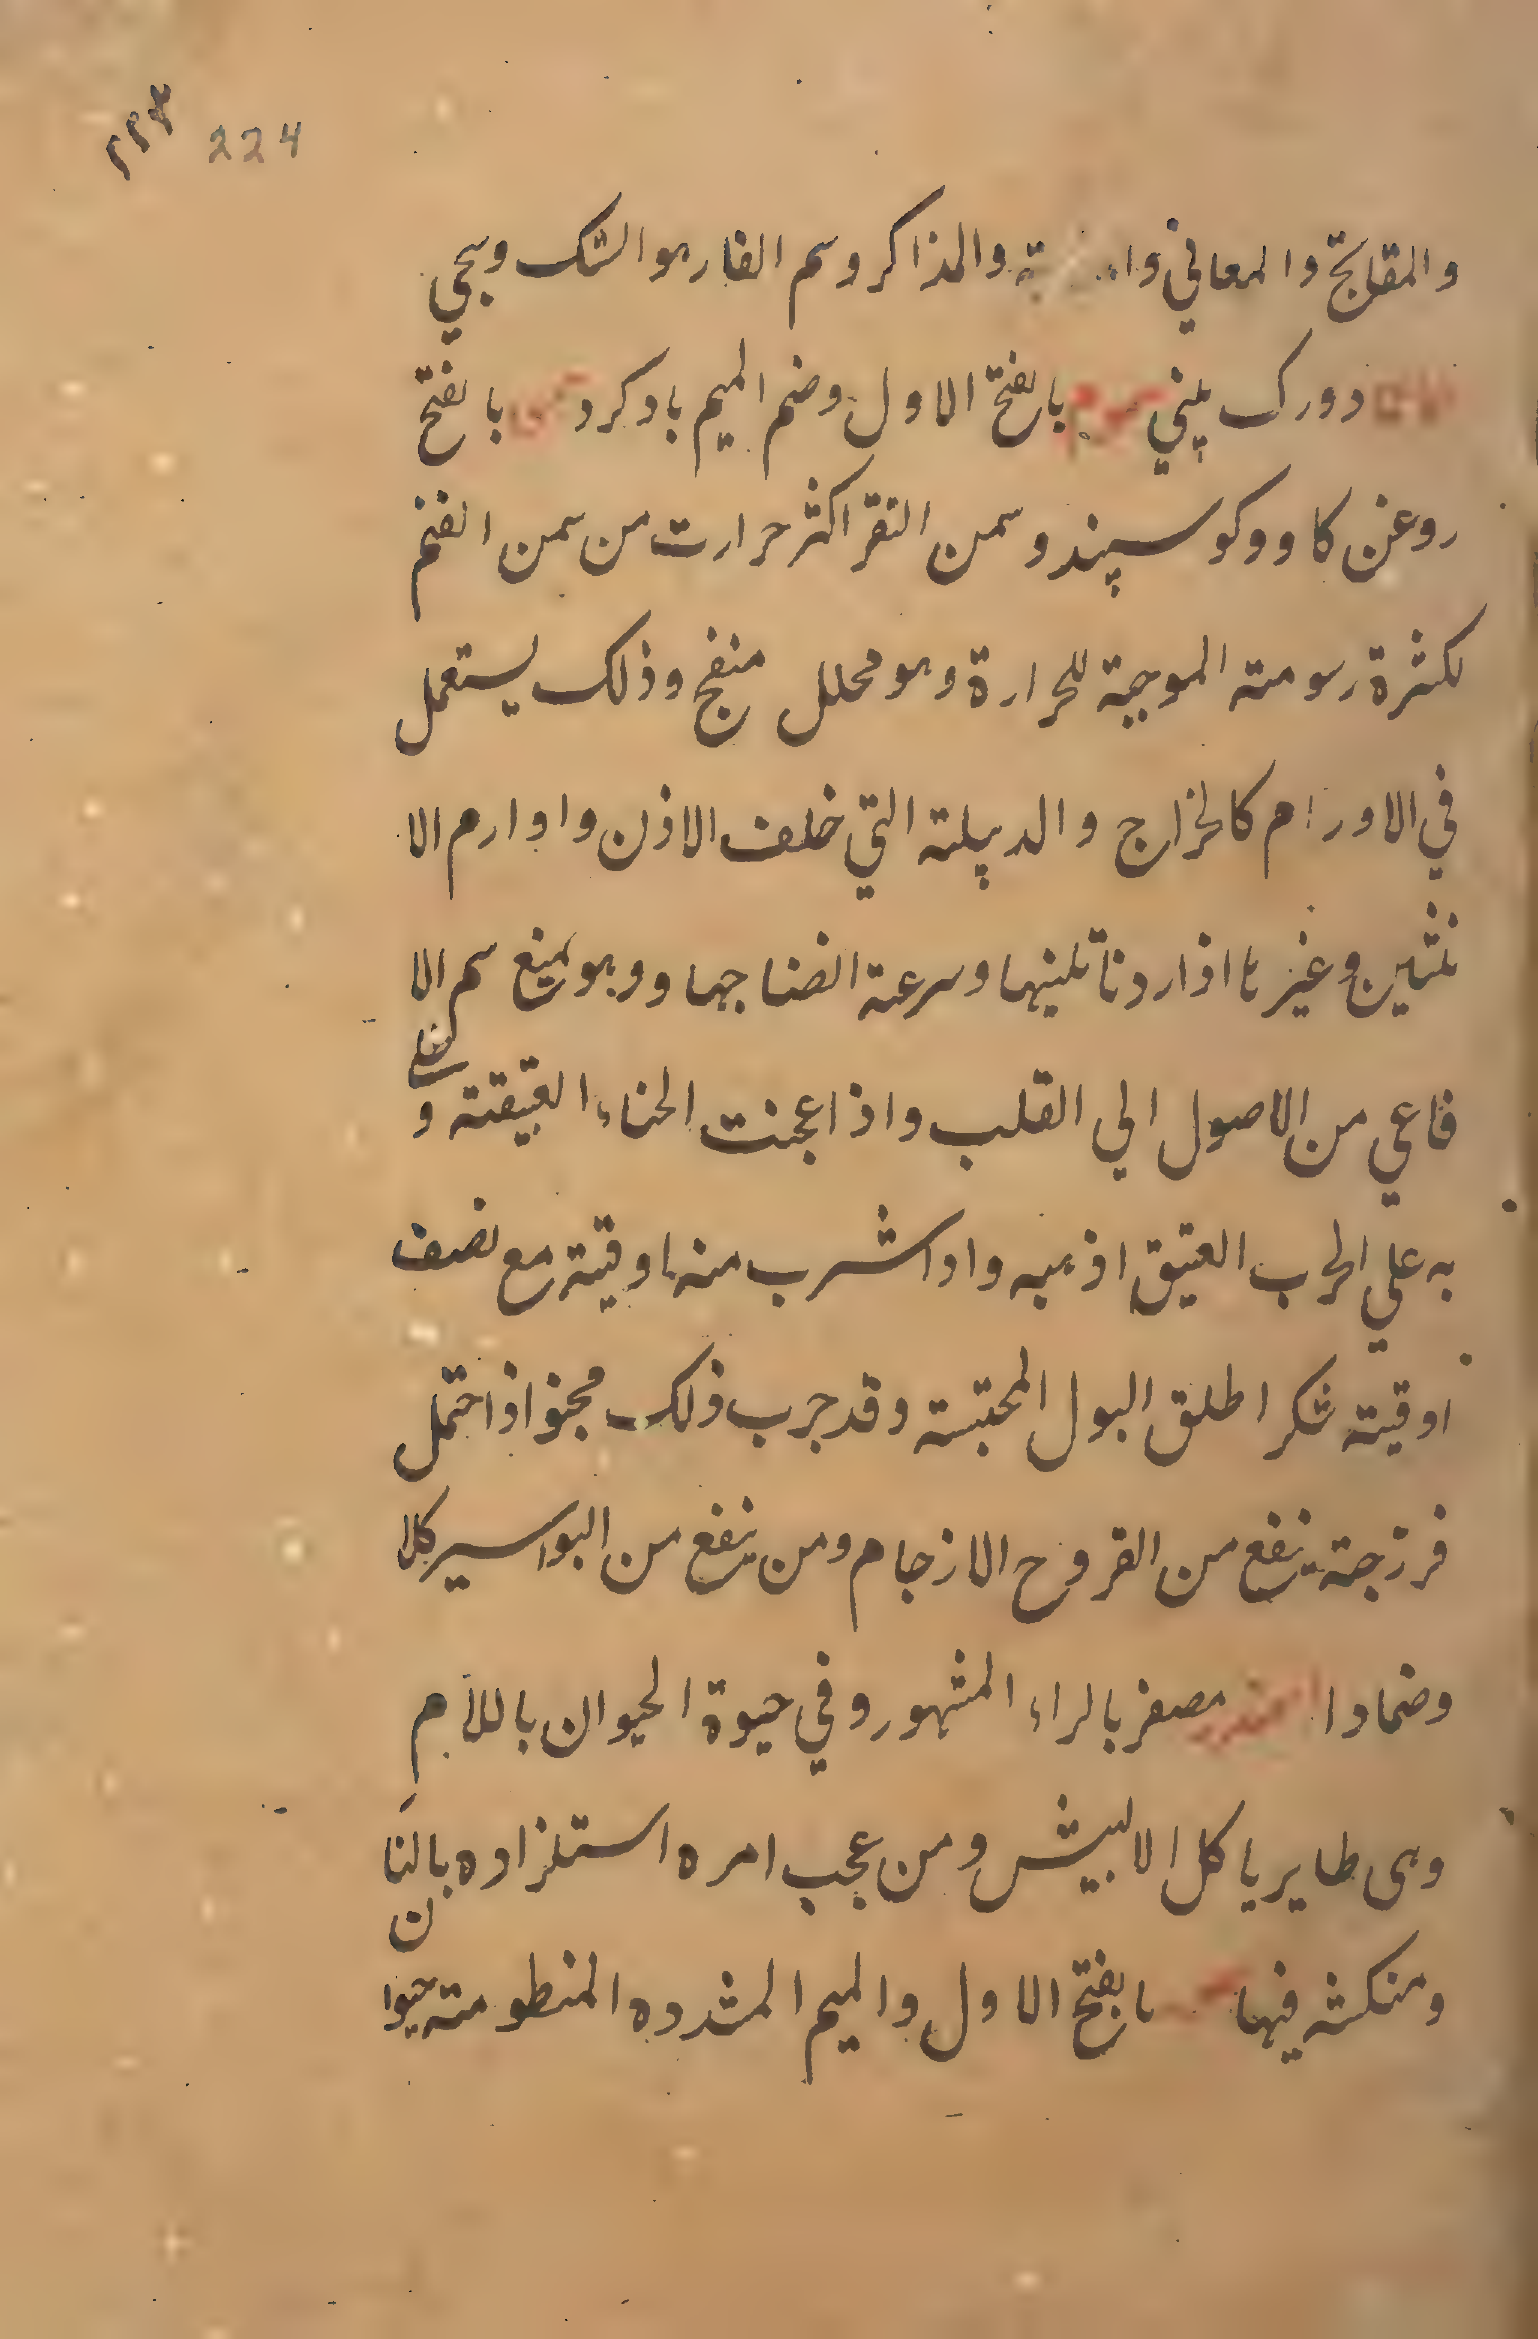 ۲۲۳ 224
والمقابح والمعاني والمذاكر وسم الفار هو الشك وسجي
دورك پلني بالفتح الاول وضم الميم بادكرد بالفتح
روغن كاو وكوسپند وسمن البقر اكثر حرارت من سمن الغنم
لكثرة رسومته الموجبة للحرارة وهو محلل منضج وذلك يستعمل
في الاورام كالخراج والدبيلة التي خلف الاذن واوارم الا
نثيين وغيرها اذا ردنا تلينها وسرعة انضاجها ووهو يمنع سم الا
فاعي من الاصول الي القلب واذا عجنت الحناء العتيقته و
به علي الجرب العتيق اذهبه واذا شرب منها وقية مع نصف
اوقيته شكر اطلق البول المحتبسة وقد جرب ذلك مجنو اذا احتمل
فرزجة ينفع من القروح الازجام ومن ينفع من البواسير كلا
وضمادا مصغر بالراء المشهور وفي حيوة الحيوان باللام
وهى طاير ياكل الالبيش ومن عجب امره استلزاده بالنا
ن
ومنكثه فيها بالفتح الاول والميم المشدده المنطومته حيوا